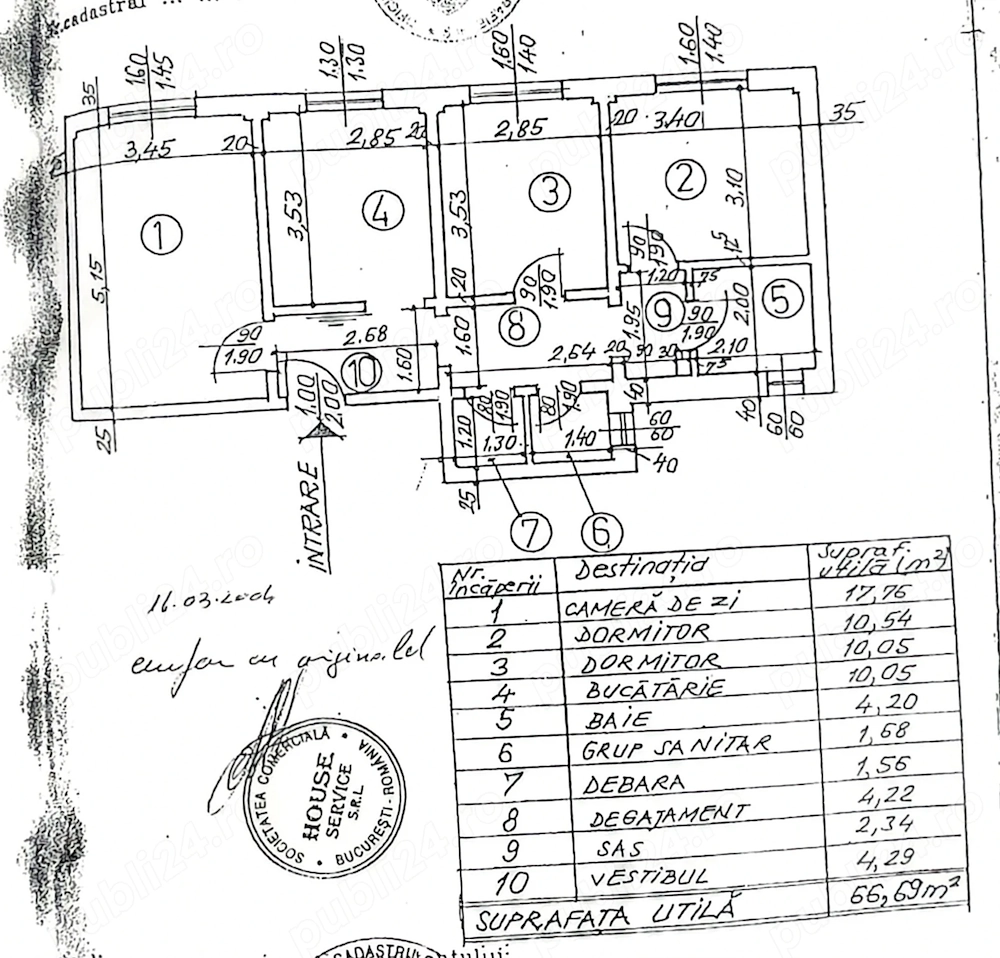 .cadastral
35
1.60
1.45
1.30
1.30
1.60
1.40
1.60
1.40
35
3,45
20
2,85
20
2,85
20
3,40
1
4
3
2
5,15
3,53
3,53
3,10
12,5
90
1.90
1.20
75
20
90
1.90
8
9
5
1.95
90
1.90
2.00
90
1.90
2.68
10
1.60
1.60
2,64
20
90
30
2.10
75
1.00
2.00
80
1.90
80
1.90
40
40
60
60
1.20
1.30
1.40
60
60
40
25
25
7
6
INTRARE
Nr. încăperii Destinația Supraf. utilă (m²)
1 CAMERĂ DE ZI 17,76
2 DORMITOR 10,54
3 DORMITOR 10,05
4 BUCĂTĂRIE 10,05
5 BAIE 4,20
6 GRUP SANITAR 1,68
7 DEBARA 1,56
8 DEGAJAMENT 4,22
9 SAS 2,34
10 VESTIBUL 4,29
SUPRAFAȚA UTILĂ 66,69 m²
16.03.2004
SOCIETATEA COMERCIALĂ
HOUSE
SERVICE
S.R.L.
BUCUREȘTI - ROMANIA
CADASTRU
publi24.ro